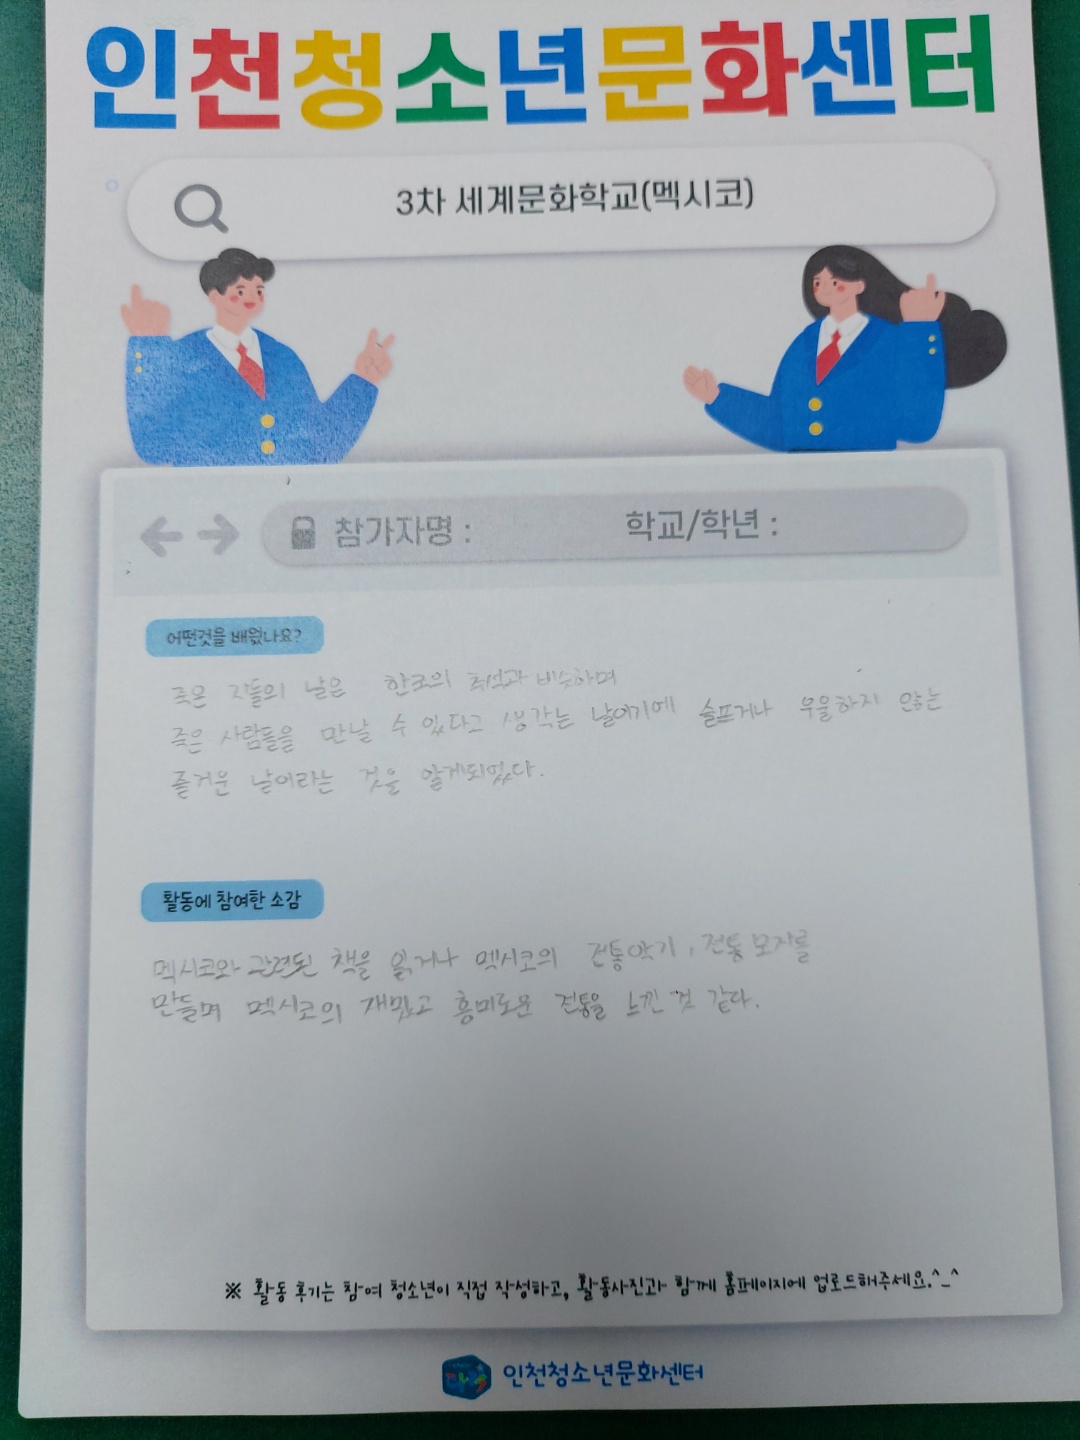 인천청소년문화센터
3차 세계문화학교(멕시코)
참가자명 : 학교/학년 :
어떤것을 배웠나요?
죽은 자들의 날은 한국의 추석과 비슷하며
죽은 사람들을 만날 수 있다고 생각는 날이기에 슬프거나 우울하지 않는
즐거운 날이라는 것을 알게되었다.
활동에 참여한 소감
멕시코와 관련된 책을 읽거나 멕시코의 전통악기, 전통모자를
만들며 멕시코의 재밌고 흥미로운 전통을 느낀 것 같다.
※ 활동 후기는 참여 청소년이 직접 작성하고, 활동사진과 함께 홈페이지에 업로드해주세요.^_^
인천청소년문화센터